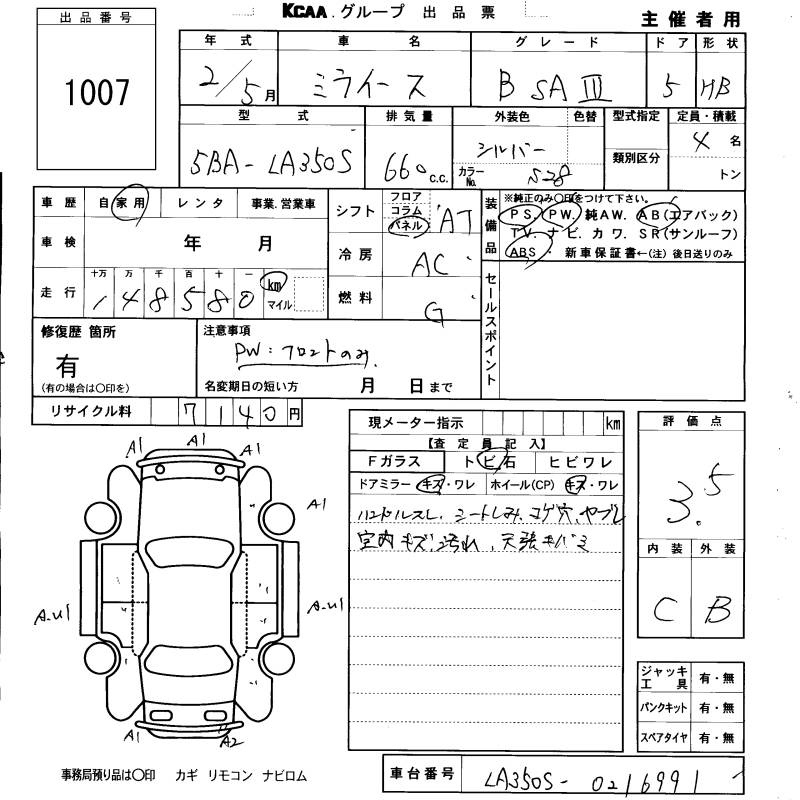 KCAA グループ 出品票
主催者用
出品番号
1007
年式 車名 グレード ドア 形状
2/5月 ミライース B SA III 5 HB
型式 排気量 外装色 色替 型式指定 定員・積載
5BA-LA350S 660c.c. シルバー カラーNo. S28 類別区分 4名 トン
車歴 自家用 レンタ 事業.営業車
車検 年 月
走行 十万 万 千 百 十 一
148580 km マイル
シフト フロア コラム パネル AT
冷房 AC
燃料 G
装備品
※純正のみ○印をつけて下さい。
PS. PW. 純AW. AB(エアバック)
TV. ナビ. カワ. SR(サンルーフ)
ABS ・ 新車保証書←(注)後日送りのみ
セールスポイント
修復歴 箇所
有
(有の場合は○印を)
注意事項
PW:フロントのみ
名変期日の短い方 月 日まで
リサイクル料 7140円
現メーター指示 km
【査定員記入】
Fガラス トビ石 ヒビワレ
ドアミラー キズ・ワレ ホイール(CP) キズ・ワレ
ハンドルスレ、シートしみ、コゲ穴、ヤブレ
室内キズ汚れ、天張キバミ
評価点
3.5
内装 外装
C B
A1 A1 A1
A1
A-U1 A-U1
A1 A2
ジャッキ工具 有・無
パンクキット 有・無
スペアタイヤ 有・無
事務局預り品は○印 カギ リモコン ナビロム
車台番号 LA350S-0216991